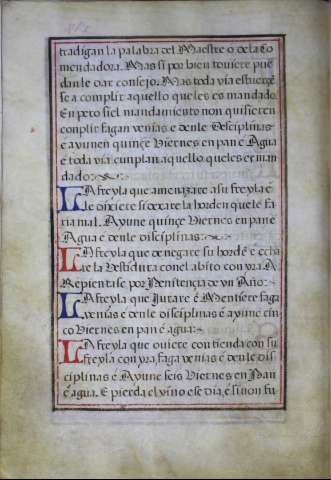 tradigan la palabra del Maestre o de la Co
mendadora. Mas si por bien toviere pue
danle dar consejo. Mas toda via esfuerçe
se a complir aquello que les es mandado.
E n pero si el mandamiento non quisieren
conplir fagan venias e denle Desciplinas
e ayunen quinçe Viernes en pan e Agua
e toda via cunplan aquello que les es man
dado:
La freyla que amenazare a su freyla e
le dixere si
tia mal. Ayune quinçe Viernes en pan e
Agua e denle disciplinas:
La freyla que denegare su horden e echa
re la Vestidura con el abito con yra A
Repientase por Penitençia de un Año:
La freyla que Jurare e Mentiere faga
venias e denle disciplinas e ayune çin
co Viernes en pan e agua:
La freyla que oviere contienda con su
freyla con yra, faga venias e denle dis
ciplinas e Ayune seis Viernes en Pan
e agua. E pierda el vino ese dia, e si non fu